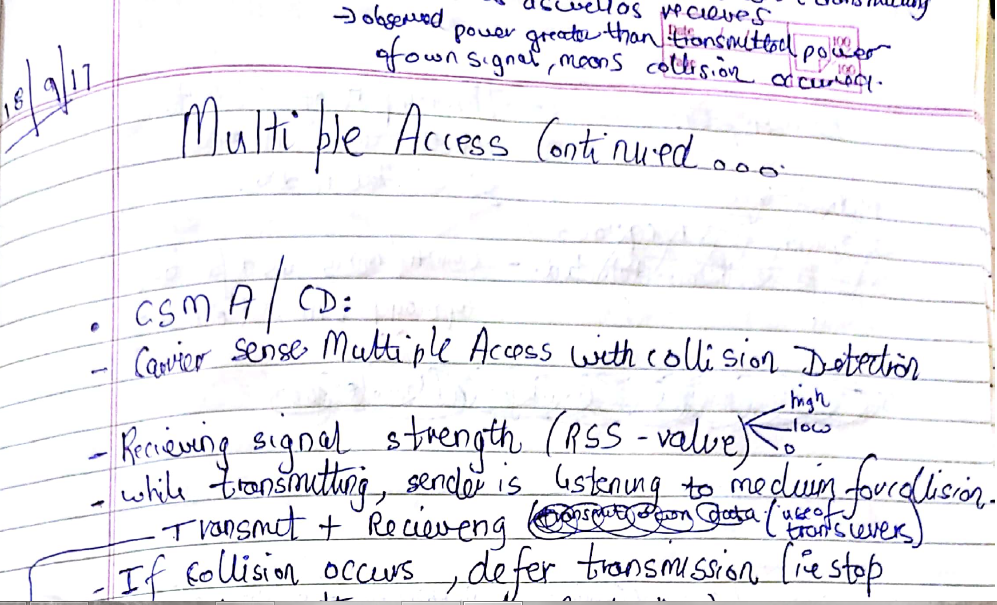 as wellas recieves
→ observed power greater than transmitted power
of own signal, means collision occuring.
18/9/17
Multiple Access Continued...
• CSMA/CD:
- Carrier sense Multiple Access with collision Detection
- Recieving signal strength (RSS-value) high
low
0
- while transmitting, sender is listening to medium for collision.
Transmit + Recieveng (use of
transievers)
- If collision occurs, defer transmission (ie stop